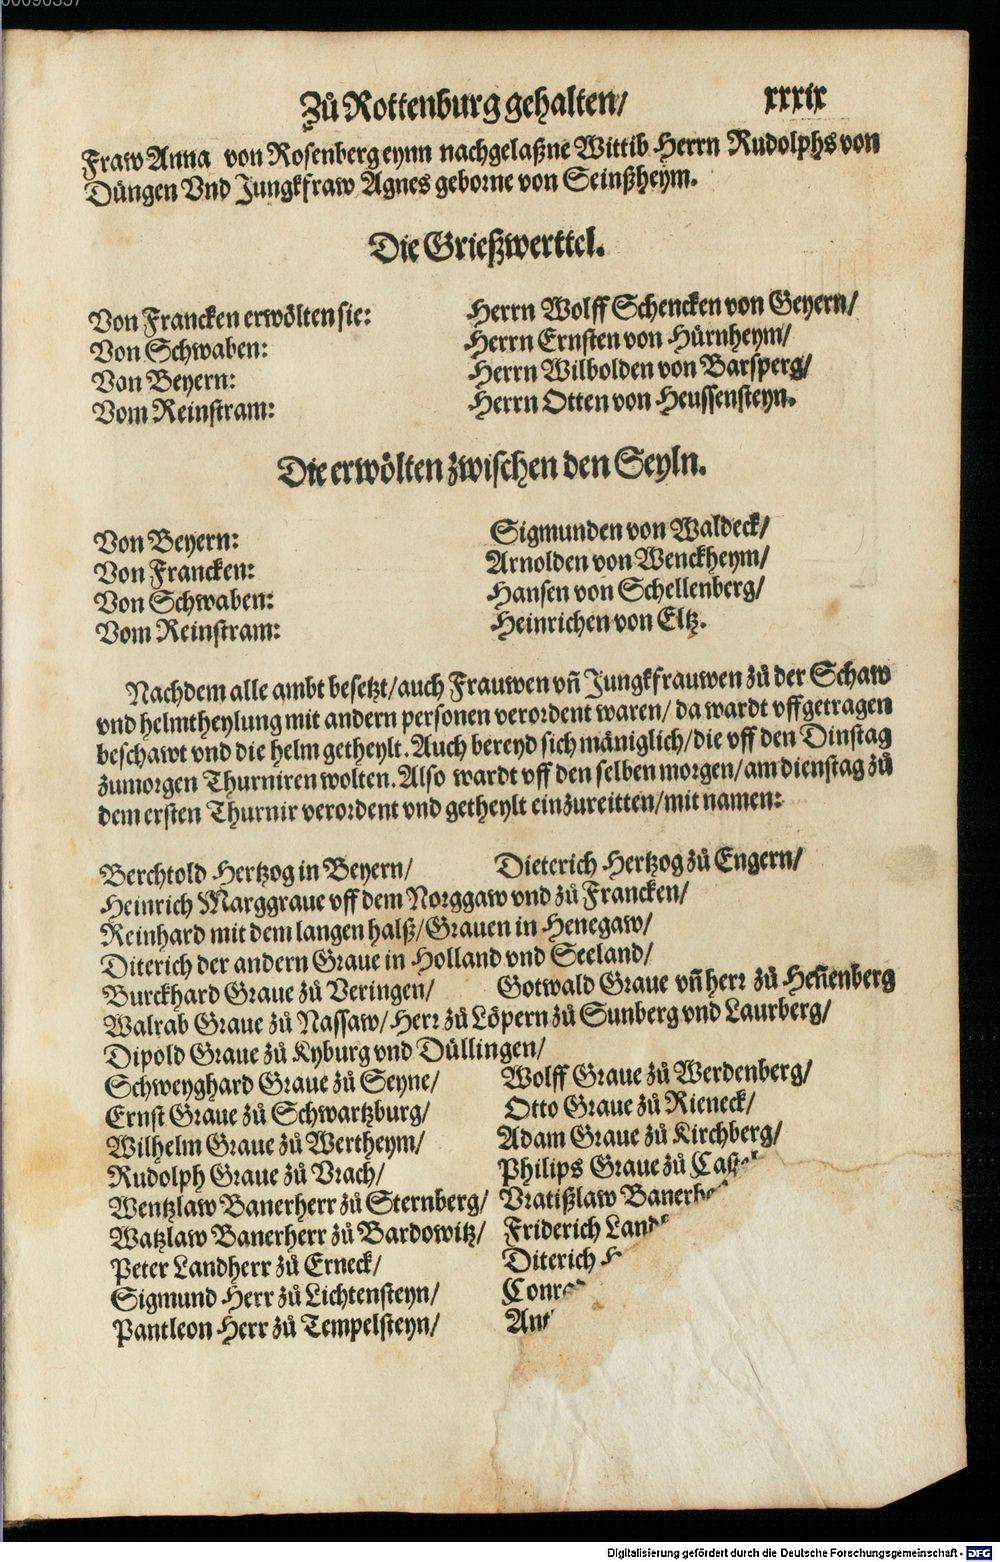 00090357
Zů Rottenburg gehalten/ xxxix
Fraw Anna von Rosenberg eynn nachgelaßne Wittib Herrn Rudolphs von
Düngen Vnd Jungkfraw Agnes geborne von Seinßheym.
Die Grießwerttel.
Von Francken erwölten sie: Herrn Wolff Schencken von Geyern/
Von Schwaben: Herrn Ernsten von Hürnheym/
Van Beyern: Herrn Wilbolden von Barsperg/
Vom Reinstram: Herrn Otten von Heussensteyn.
Die erwölten zwischen den Seyln.
Von Beyern: Sigmunden von Waldeck/
Von Francken: Arnolden von Wenckheym/
Von Schwaben: Hansen von Schellenberg/
Vom Reinstram: Heinrichen von Eltz.
Nachdem alle ambt besetzt/auch Frauwen vñ Jungkfrauwen zů der Schaw
vnd helmtheylung mit andern personen verordent waren/ da wardt vffgetragen
beschawt vnd die helm getheylt. Auch bereyd sich mäniglich/die vff den Dinstag
zumorgen Thurniren wolten. Also wardt vff den selben morgen/am dienstag zů
dem ersten Thurnir verordent vnd getheylt einzureitten/mit namen:
Berchtold Hertzog in Beyern/ Dieterich Hertzog zů Engern/
Heinrich Marggraue vff dem Norggaw vnd zů Francken/
Reinhard mit dem langen halß/Grauen in Henegaw/
Diterich der andern Graue in Holland vnd Seeland/
Burckhard Graue zů Veringen/ Gotwald Graue vñ herr zů Heñenberg
Walrab Graue zů Nassaw/ Herr zů Löpern zů Sunberg vnd Laurberg/
Dipold Graue zů Kyburg vnd Düllingen/
Schweyghard Graue zů Seyne/ Wolff Graue zů Werdenberg/
Ernst Graue zů Schwartzburg/ Otto Graue zů Rieneck/
Wilhelm Graue zů Wertheym/ Adam Graue zů Kirchberg/
Rudolph Graue zů Vrach/ Philips Graue zů
Wentzlaw Banerherr zů Sternberg/ Vratißlaw
Watzlaw Banerherr zů Bardowitz/ Friderich
Peter Landherr zů Erneck/ Diterich
Sigmund Herr zů Lichtensteyn/
Pantleon Herr zů Tempelsteyn/
Digitalisierung gefördert durch die Deutsche Forschungsgemeinschaft - DFG